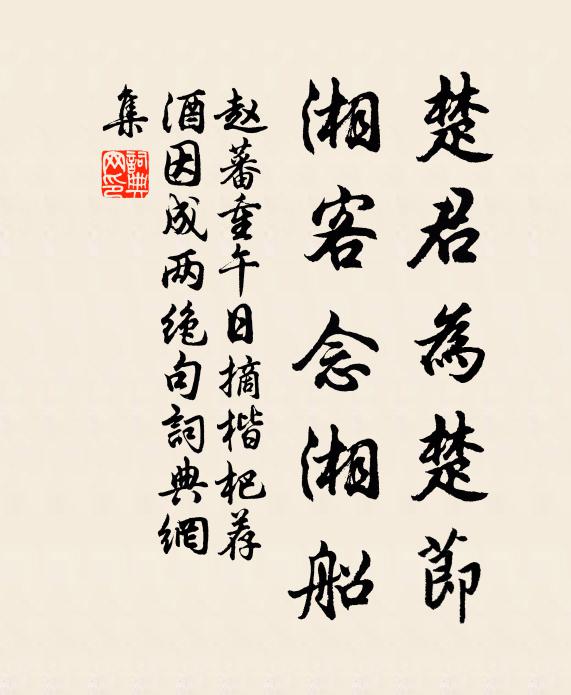 楚君為楚節
湘客念湘船
赵蕃重午日摘楷杷荐
酒因成两绝句詞典網
集
詞典網印